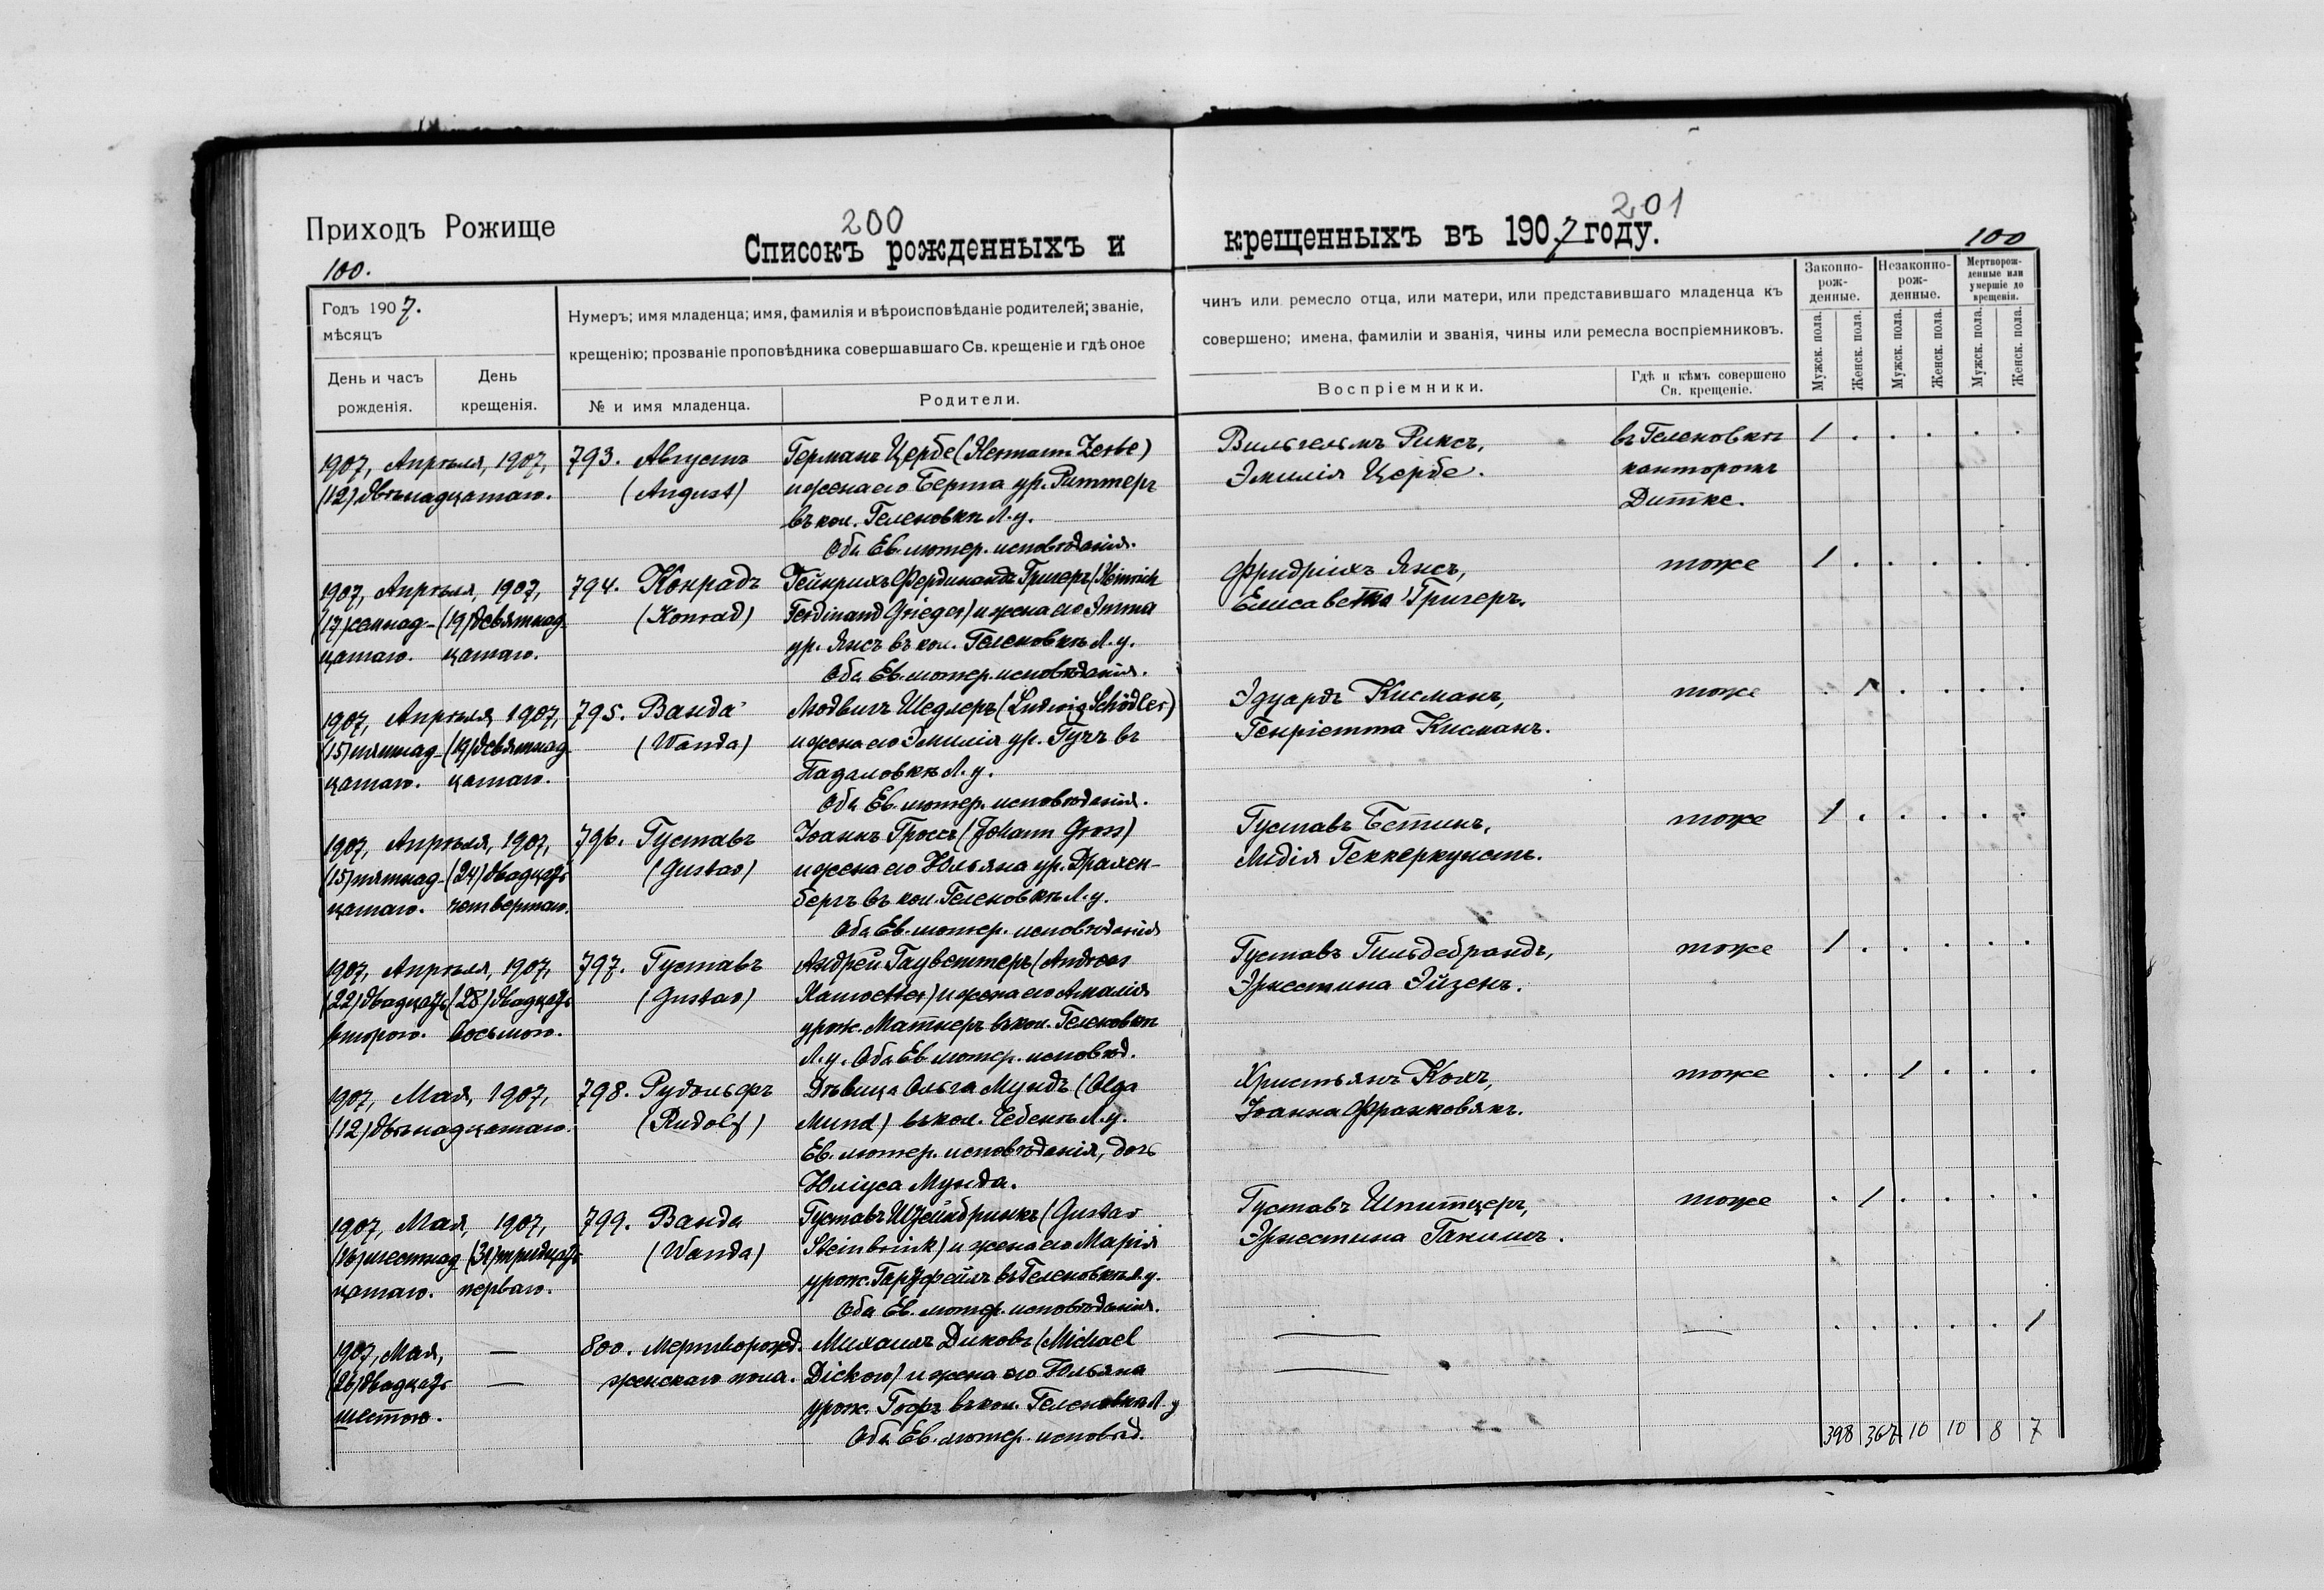 200
201
Приходъ Рожище
Списокъ рожденныхъ и
крещенныхъ въ 1907 году.
100.
100
Годъ 1907.
мѣсяцъ
День и часъ
рожденія.
День
крещенія.
Нумеръ; имя младенца; имя, фамилія и вѣроисповѣданіе родителей; званіе,
крещенію; прозваніе проповѣдника совершавшаго Св. крещеніе и гдѣ оное
№ и имя младенца.
Родители.
чинъ или ремесло отца, или матери, или представившаго младенца къ
совершено; имена, фамиліи и званія, чины или ремесла воспріемниковъ.
Воспріемники.
Гдѣ и кѣмъ совершено
Св. крещеніе.
Законно-
рож-
денные.
Незаконно-
рож-
денные.
Мертворож-
денные или
умершіе до
крещенія.
Мужск. пола.
Женск. пола.
Мужск. пола.
Женск. пола.
Мужск. пола.
Женск. пола.
1907, Апрѣля, 1907,
(12) двѣнадцатаго.
793. Августъ
(August)
Германъ Цербе (Hermann Zerbe)
и жена его Берта ур. Риттеръ
въ кол. Геленовкѣ Л. у.
Оба Ев. лютер. исповѣданія.
Вильгельмъ Риксъ,
Эмилія Цербе.
въ Геленовкѣ
канторомъ
Дитке.
1 . . . . .
1907, Апрѣля, 1907,
(17) семнад- (19) девятнад-
цатаго. цатаго.
794. Конрадъ
(Konrad)
Гейнрихъ Фердинандъ Григеръ (Heinrich
Ferdinand Grieger) и жена его Эмма
ур. Янсъ въ кол. Геленовкѣ Л. у.
Оба Ев. лютер. исповѣданія.
Фридрихъ Янсъ,
Елисавета Григеръ.
тоже
1 . . . . .
1907, Апрѣля 1907,
(15) пятнад- (19) девятнад-
цатаго. цатаго.
795. Ванда
(Wanda)
Людвигъ Шедлеръ (Ludwig Schödler)
и жена его Эмилія ур. Гучъ въ
Падаловкѣ Л. у.
Оба Ев. лютер. исповѣданія.
Эдуардъ Кисманъ,
Генріетта Кисманъ.
тоже
. 1 . . . .
1907, Апрѣля, 1907,
(15) пятнад- (24) двадцать
цатаго. четвертаго.
796. Густавъ
(Gustav)
Іоаннъ Гроссъ (Johann Gross)
и жена его Юльяна ур.
бергъ въ кол. Геленовкѣ Л. у.
Оба Ев. лютер. исповѣданія
Густавъ Бетинъ,
Лидія Геккеркунстъ.
тоже
1 . . . . .
1907, Апрѣля, 1907,
(22) двадцать (28) двадцать
второго. восьмого.
797. Густавъ
(Gustav)
Андрей Гауветтеръ (Andreas
и жена его Амалія
урож. Матнеръ въ кол. Геленовкѣ
Л. у. Оба Ев. лютер. исповѣд.
Густавъ Гильдебрандъ,
Эрнестина Эйзенъ.
тоже
1 . . . . .
1907, Мая, 1907,
(12) двѣнадцатаго.
798. Рудольфъ
(Rudolf)
Дѣвица Ольга Мундъ (Olga
Mund) въ кол. Чебенѣ Л. у.
Ев. лютер. исповѣданія, дочь
Юліуса Мунда.
Христьянъ Коль,
Іоанна Франковякъ.
тоже
. . 1 . . .
1907, Мая, 1907,
(16) шестнад- (31) тридцать
цатаго. перваго.
799. Ванда
(Wanda)
Густавъ Штейнбринкъ (Gustav
Steinbrink) и жена его Марія
урож. въ Геленовкѣ Л. у.
Оба Ев. лютер. исповѣданія.
Густавъ Шпитцеръ,
Эрнестина
тоже
. 1 . . . .
1907, Мая, —
(26) двадцать —
шестого.
800. Мертворожд.
женскаго пола.
Михаилъ Диковъ (Michael
Dickow) и жена его Юльяна
урож. Гофъ въ кол. Геленовкѣ Л. у
Оба Ев. лютер. исповѣд.
. . . . . 1
398 367 10 10 8 7